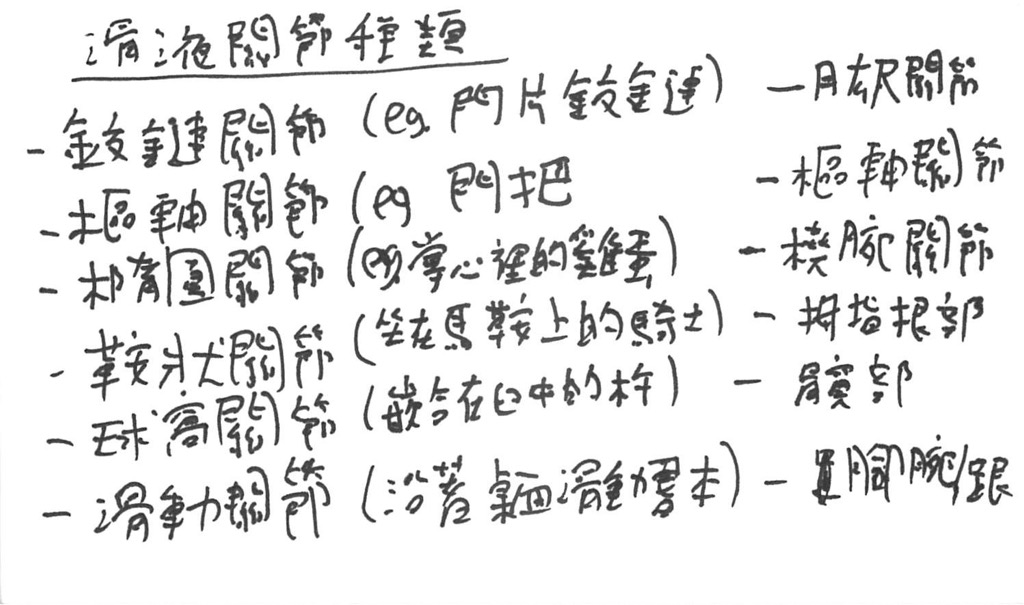 滑液關節種類
- 鉸鏈關節 (eg. 門片鉸鏈) - 肘關節
- 樞軸關節 (eg 門把 - 樞軸關節
- 橢圓關節 (eg 掌心裡的雞蛋) - 橈腕關節
- 鞍狀關節 (坐在馬鞍上的騎士) - 拇指根部
- 球窩關節 (嵌合在臼中的杵) - 髖部
- 滑動關節 (沿著桌面滑動書本) - 腕/跟